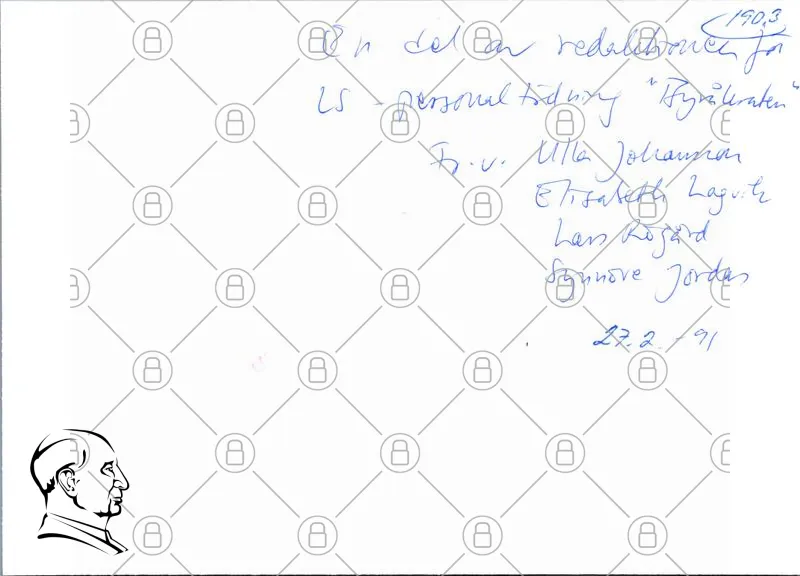 190.3
En del av redaktionen för
LS-personaltidning "Byråkraten"
Fr. v. Ulla Johannson
Elisabeth
Lars Rogård
Synnöve Jordan
27.2 -91